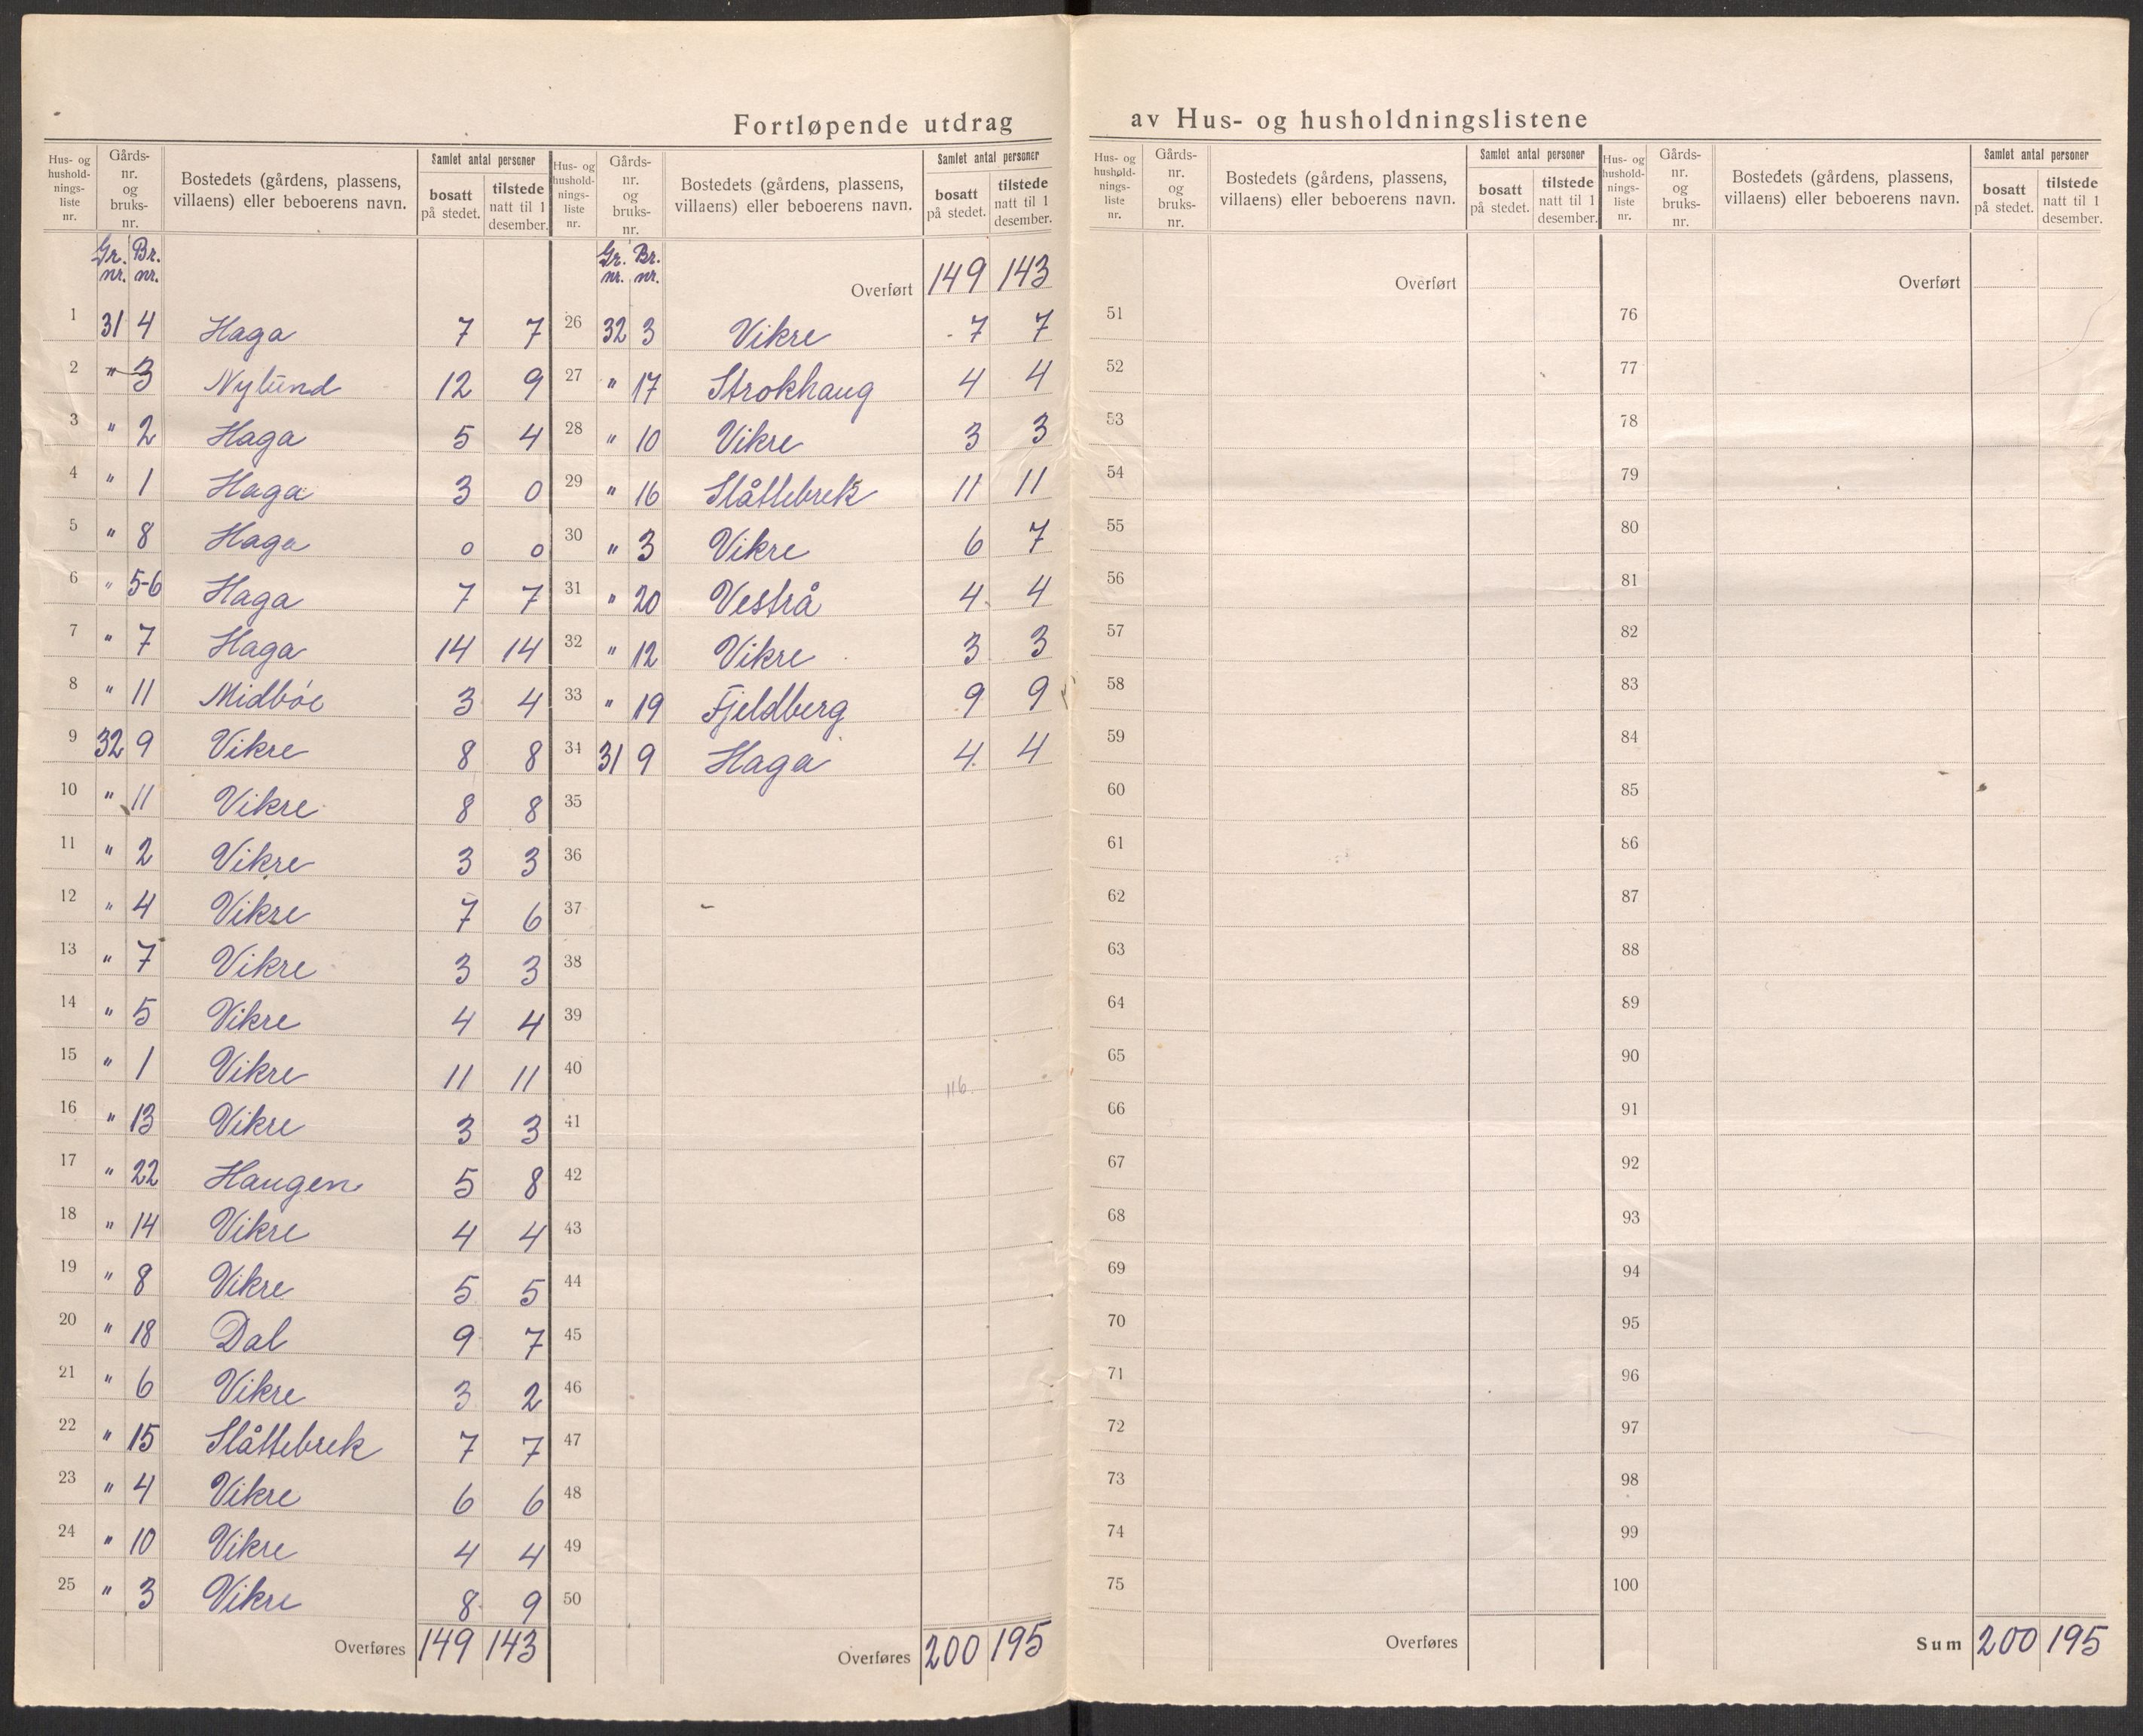 Fortløpende utdrag av Hus- og husholdningslistene
Hus- og hushold-nings-liste nr. Gårds-nr. og bruks-nr. Bostedets (gårdens, plassens, villaens) eller beboerens navn. Samlet antal personer bosatt på stedet. tilstede natt til 1 desember.
Gr. nr. Br. nr.
1 31 4 Haga 7 7
2 " 3 Nylund 12 9
3 " 2 Haga 5 4
4 " 1 Haga 3 0
5 " 8 Haga 0 0
6 " 5-6 Haga 7 7
7 " 7 Haga 14 14
8 " 11 Midbøe 3 4
9 32 9 Vikre 8 8
10 " 11 Vikre 8 8
11 " 2 Vikre 3 3
12 " 4 Vikre 7 6
13 " 7 Vikre 3 3
14 " 5 Vikre 4 4
15 " 1 Vikre 11 11
16 " 13 Vikre 3 3
17 " 22 Haugen 5 8
18 " 14 Vikre 4 4
19 " 8 Vikre 5 5
20 " 18 Dal 9 7
21 " 6 Vikre 3 2
22 " 15 Slåttebrek 7 7
23 " 4 Vikre 6 6
24 " 10 Vikre 4 4
25 " 3 Vikre 8 9
Overføres 149 143
Hus- og hushold-nings-liste nr. Gårds-nr. og bruks-nr. Bostedets (gårdens, plassens, villaens) eller beboerens navn. Samlet antal personer bosatt på stedet. tilstede natt til 1 desember.
Gr. nr. Br. nr. Overført 149 143
26 32 3 Vikre 7 7
27 " 17 Strokhaug 4 4
28 " 10 Vikre 3 3
29 " 16 Slåttebrek 11 11
30 " 3 Vikre 6 7
31 " 20 Vestrå 4 4
32 " 12 Vikre 3 3
33 " 19 Fjeldberg 9 9
34 31 9 Haga 4 4
35
36
37
38
39
40 116.
41
42
43
44
45
46
47
48
49
50
Overføres 200 195
Hus- og hushold-nings-liste nr. Gårds-nr. og bruks-nr. Bostedets (gårdens, plassens, villaens) eller beboerens navn. Samlet antal personer bosatt på stedet. tilstede natt til 1 desember.
Overført
51
52
53
54
55
56
57
58
59
60
61
62
63
64
65
66
67
68
69
70
71
72
73
74
75
Overføres
Hus- og hushold-nings-liste nr. Gårds-nr. og bruks-nr. Bostedets (gårdens, plassens, villaens) eller beboerens navn. Samlet antal personer bosatt på stedet. tilstede natt til 1 desember.
Overført
76
77
78
79
80
81
82
83
84
85
86
87
88
89
90
91
92
93
94
95
96
97
98
99
100
Sum 200 195